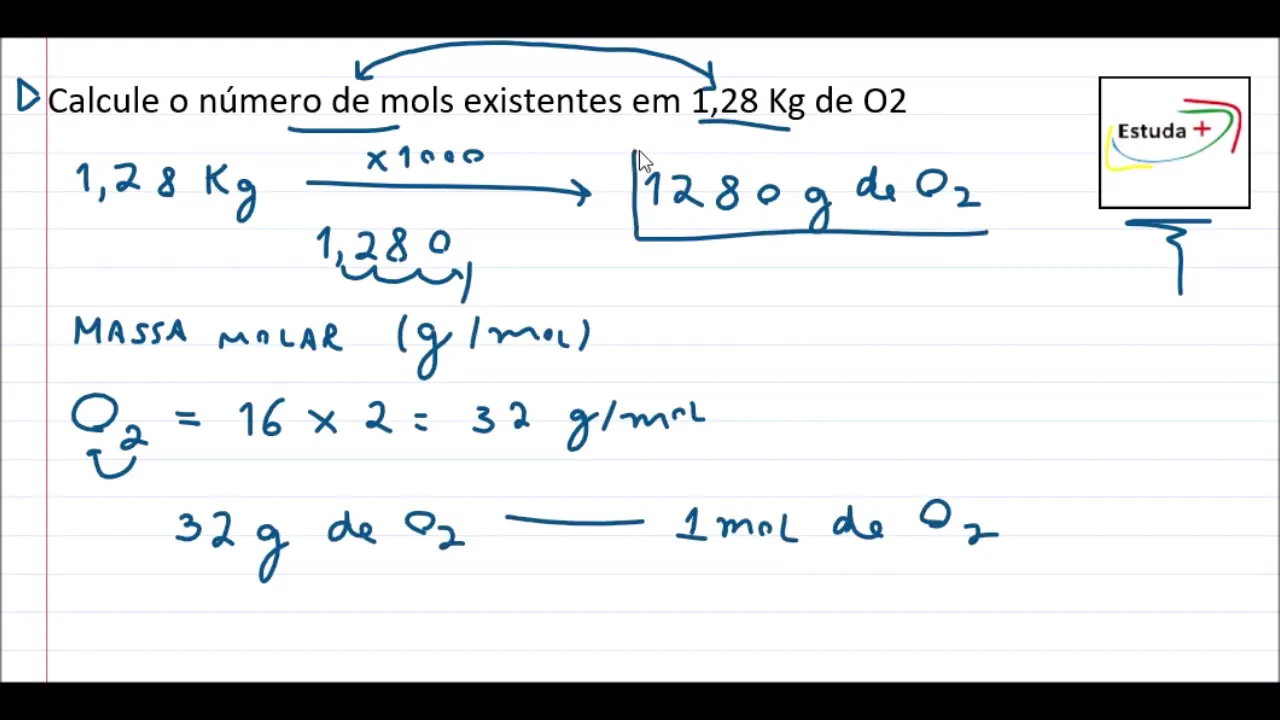 Calcule o número de mols existentes em 1,28 Kg de O2
Estuda +
x 1000
1,28 Kg 1280 g de O2
1,280
MASSA MOLAR (g/mol)
O2 = 16 x 2 = 32 g/mol
32 g de O2 — 1 mol de O2